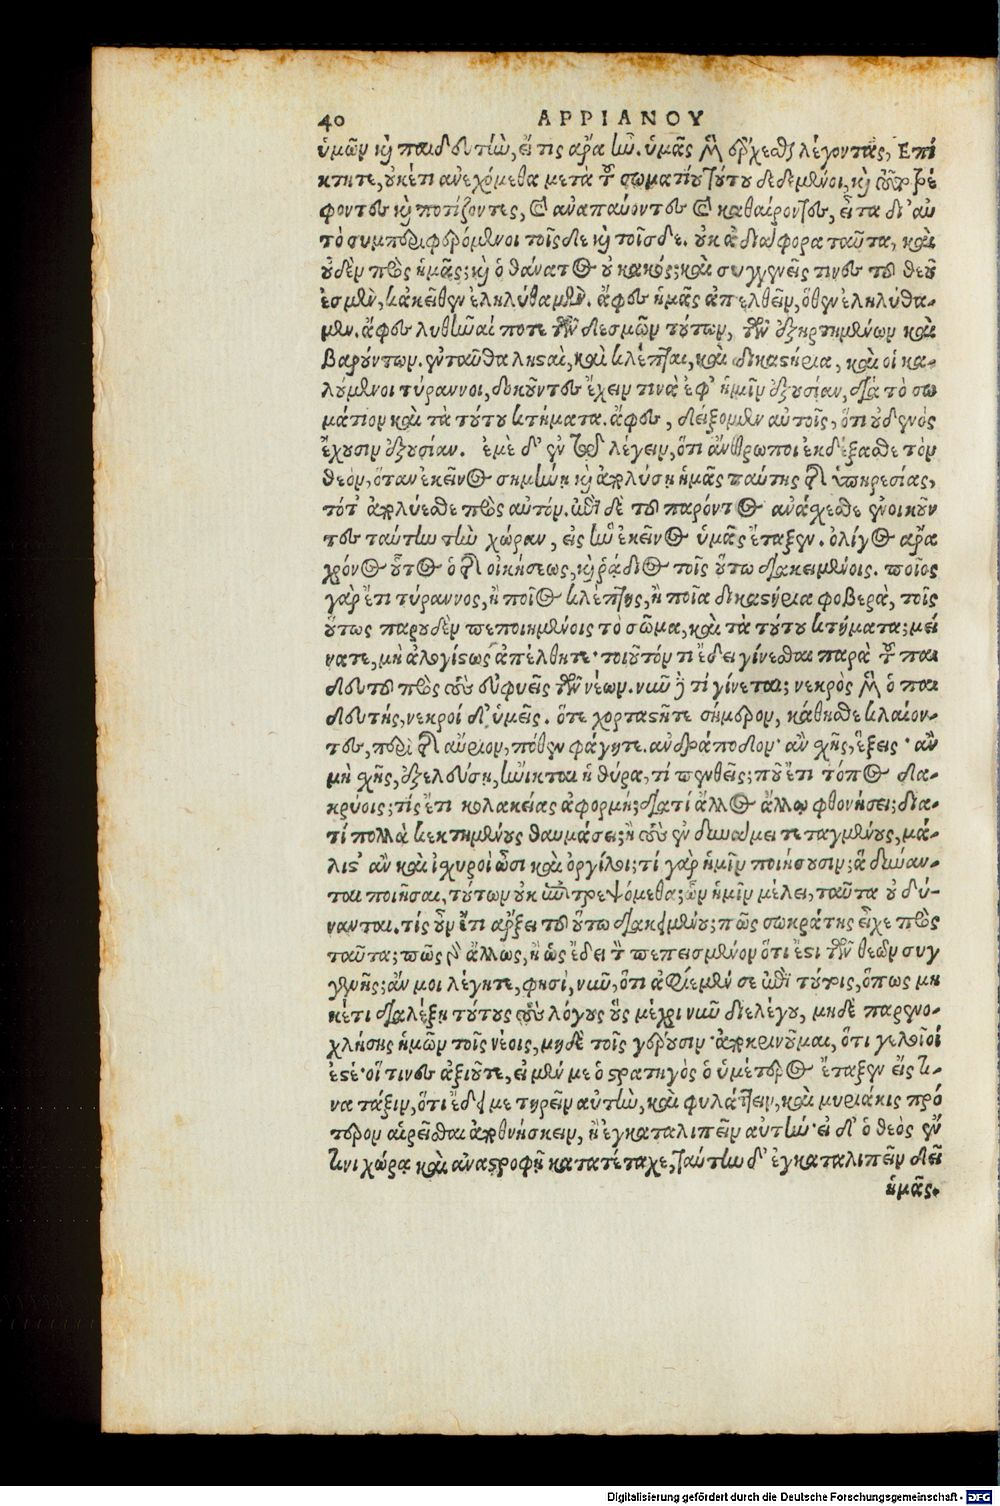 40 ΑΡΡΙΑΝΟΥ
ὑμῶν καὶ παιδευτὴν, εἴ τις ἄρα ἦν. ὑμᾶς μὲν ἔρχεσθαι λέγοντας, Ἐπί
κτητε, οὐκέτι ἀνεχόμεθα μετὰ τοῦ σωματίου τούτου δεδεμένοι, καὶ τοῦτο τρέ
φοντες καὶ ποτίζοντες, καὶ ἀναπαύοντες καὶ καθαίροντες, εἶτα δι' αὐ
τὸ συμπεριφερόμενοι τοῖς δε καὶ τοῖσδε. οὐκ ἀδιάφορα ταῦτα, καὶ
οὐδὲν πρὸς ἡμᾶς; καὶ ὁ θάνατος οὐ κακός; καὶ συγγενεῖς τινες τοῦ θεοῦ
ἐσμὲν, κἀκεῖθεν ἐληλύθαμεν. ἄφες ἡμᾶς ἀπελθεῖν, ὅθεν ἐληλύθα-
μεν. ἄφες λυθῆναί ποτε τῶν δεσμῶν τούτων, τῶν ἐξηρτημένων καὶ
βαρούντων. ἐνταῦθα λῃσταὶ, καὶ κλέπται, καὶ δικαστήρια, καὶ οἱ κα-
λούμενοι τύραννοι, δοκοῦντες ἔχειν τινὰ ἐφ' ἡμῖν ἐξουσίαν, διὰ τὸ σω
μάτιον καὶ τὰ τούτου κτήματα. ἄφες, δείξομεν αὐτοῖς, ὅτι οὐδενὸς
ἔχουσιν ἐξουσίαν. ἐμὲ δ' ἐν τῷδε λέγειν, ὅτι ἄνθρωποι ἐκδέξασθε τὸν
θεόν, ὅταν ἐκεῖνος σημήνῃ καὶ ἀπολύσῃ ἡμᾶς ταύτης τῆς ὑπηρεσίας,
τότ' ἀπολύεσθε πρὸς αὐτόν. ἐπὶ δὲ τοῦ παρόντος ἀνάσχεσθε ἐνοικοῦν
τες ταύτην τὴν χώραν, εἰς ἣν ἐκεῖνος ὑμᾶς ἔταξεν. ὀλίγος ἄρα
χρόνος οὗτος ὁ τῆς οἰκήσεως, καὶ ῥᾴδιος τοῖς οὕτω διακειμένοις. ποῖος
γὰρ ἔτι τύραννος, ἢ ποῖος κλέπτης, ἢ ποῖα δικαστήρια φοβερὰ, τοῖς
οὕτως παρ' οὐδὲν πεποιημένοις τὸ σῶμα, καὶ τὰ τούτου κτήματα; μεί
νατε, μὴ ἀλογίστως ἀπέλθητε· τοιοῦτόν τι ἔδει γίνεσθαι παρὰ τοῦ παι
δευτοῦ πρὸς τοὺς εὐφυεῖς τῶν νέων. νῦν δὲ τί γίνεται; νεκρὸς μὲν ὁ παι
δευτής, νεκροί δ' ὑμεῖς. ὅτε χορτασθῆτε σήμερον, κάθησθε κλαίον-
τες, περὶ τῆς αὔριον, πόθεν φάγητε. ἀνδράποδον· ἂν σχῇς, ἕξεις· ἂν
μὴ σχῇς, ἐξελεύσῃ, ἤνοικται ἡ θύρα, τί πενθεῖς; ποῦ ἔτι τόπος δα-
κρύοις; τίς ἔτι κολακείας ἀφορμή; διατί ἄλλος ἄλλῳ φθονήσει; δια-
τί πολλὰ κεκτημένους θαυμάσει; ἢ τοὺς ἐν δυνάμει τεταγμένους, μά-
λιστ' ἂν καὶ ἰσχυροὶ ὦσι καὶ ὀργίλοι; τί γὰρ ἡμῖν ποιήσουσιν; ἃ δύναν-
ται ποιῆσαι, τούτων οὐκ ἐπιτρεψόμεθα; ὧν ἡμῖν μέλει, ταῦτα οὐ δύ-
νανται. τίς οὖν ἔτι ἄρξει τοῦ οὕτω διακειμένου; πῶς σωκράτης εἶχε πρὸς
ταῦτα; πῶς γὰρ ἄλλως, ἢ ὡς ἔδει τὸν πεπεισμένον ὅτι ἐστὶ τῶν θεῶν συγ
γενής; ἄν μοι λέγητε, φησί, νῦν, ὅτι ἀφίεμέν σε ἐπὶ τούτοις, ὅπως μη
κέτι διαλέξῃ τούτους τοὺς λόγους οὓς μέχρι νῦν διελέγου, μηδὲ παρενο-
χλήσῃς ἡμῶν τοῖς νέοις, μηδὲ τοῖς γέρουσιν· ἀποκρινοῦμαι, ὅτι γελοῖοί
ἐστέ· οἵ τινες ἀξιοῦτε, εἰ μέν με ὁ στρατηγὸς ὁ ὑμέτερος ἔταξεν εἴς τι-
να τάξιν, ὅτι ἔδει με τηρεῖν αὐτὴν, καὶ φυλάττειν, καὶ μυριάκις πρό
τερον αἱρεῖσθαι ἀποθνήσκειν, ἢ ἐγκαταλιπεῖν αὐτὴν· εἰ δ' ὁ θεὸς ἔν
τινι χώρᾳ καὶ ἀναστροφῇ κατατέταχε, ταύτην δ' ἐγκαταλιπεῖν δεῖ
ἡμᾶς.
Digitalisierung gefördert durch die Deutsche Forschungsgemeinschaft - DFG